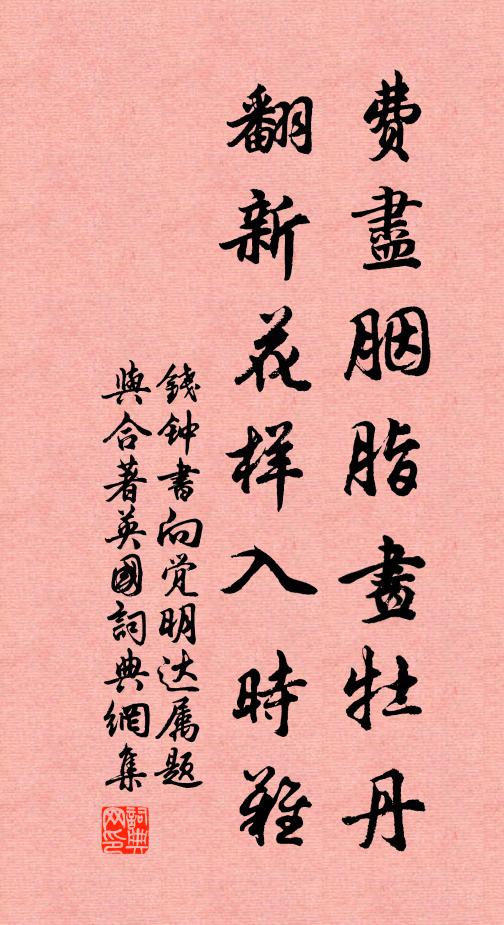 費盡胭脂畫牡丹
翻新花样入時難
錢钟書向觉明达属題
與合著英國詞典網集
詞典
网印